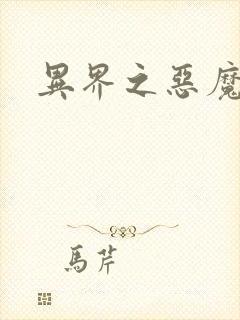 異界之惡魔
馬芹